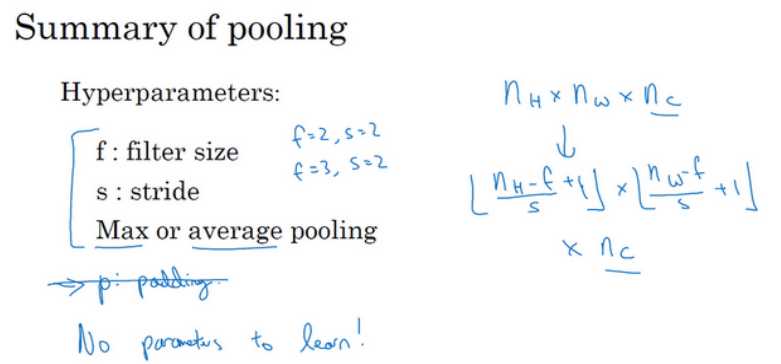 Summary of pooling
Hyperparameters:
f : filter size
s : stride
Max or average pooling
f=2, s=2
f=3, s=2
→ p: padding.
No parameters to learn!
n_H × n_W × n_C
↓
⌊(n_H - f)/s + 1⌋ × ⌊(n_W - f)/s + 1⌋
× n_C